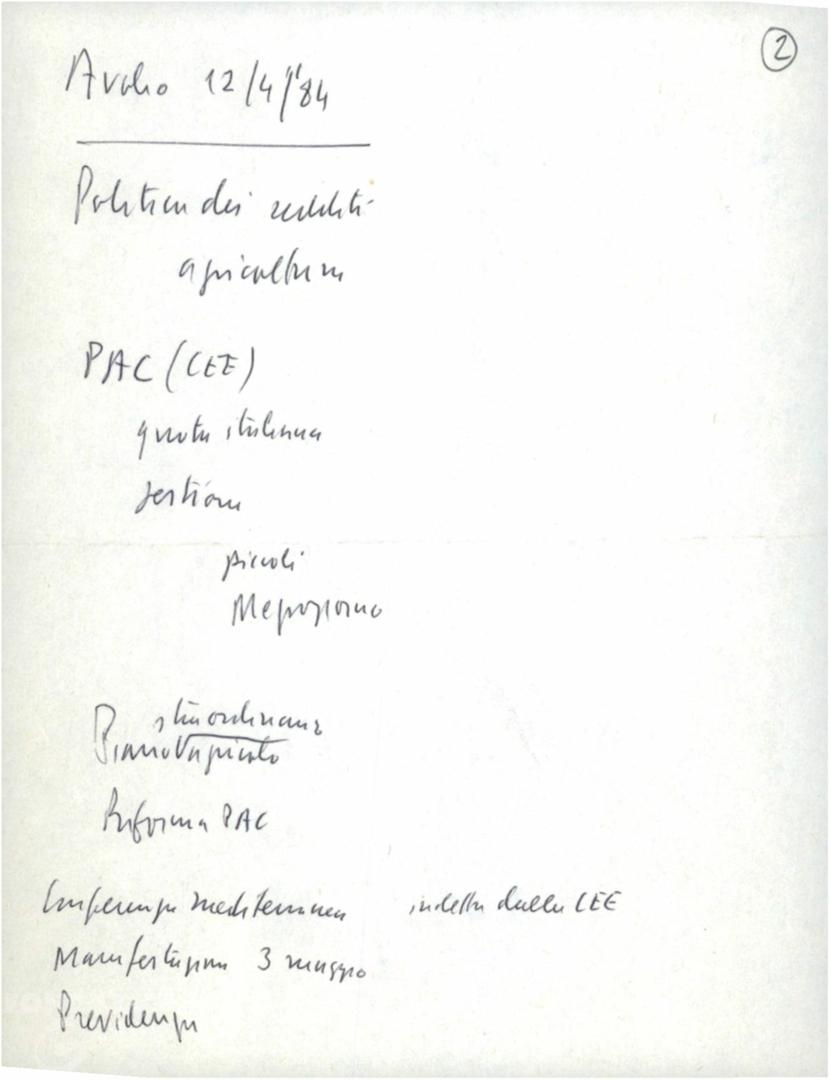 ②
Avolio 12/4/'84
Politica dei redditi
agricoltura
PAC (CEE)
quota italiana
gestione
piccoli
Mezzogiorno
straordinario
Piano agricolo
Riforma PAC
Conferenza mediterranea indetta dalla CEE
Manifestazione 3 maggio
Previdenza